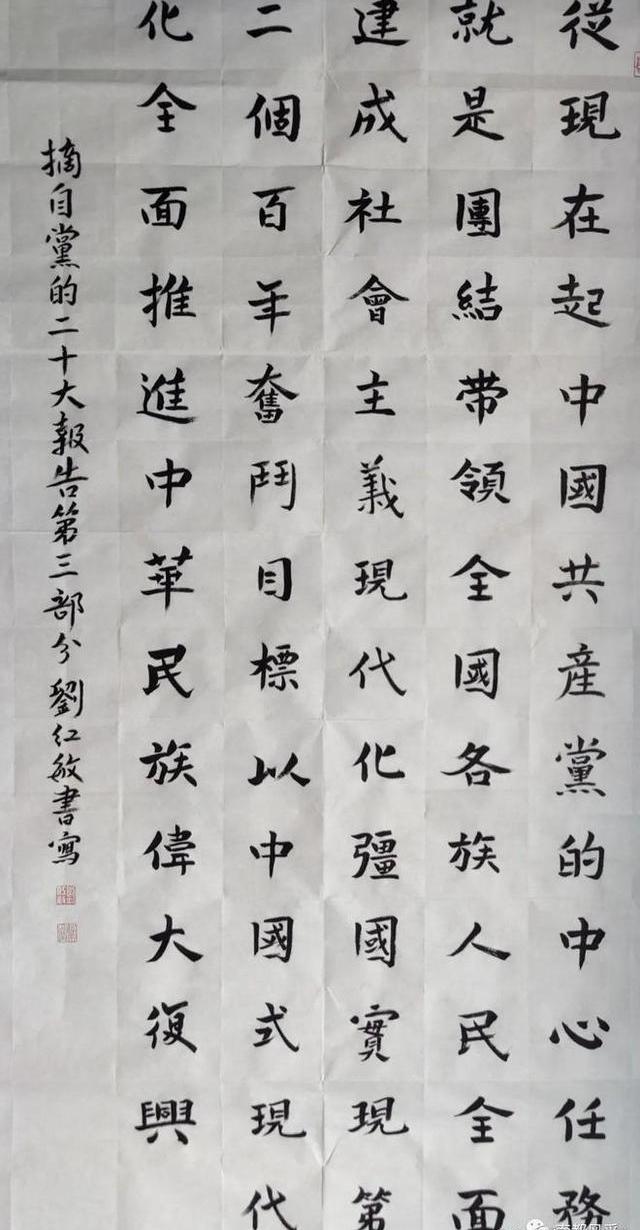 從現在起中國共產黨的中心任務
就是團結帶領全國各族人民全面
建成社會主義現代化彊國實現第
二個百年奮鬥目標以中國式現代
化全面推進中華民族偉大復興
摘自黨的二十大報告第三部分劉紅敏書寫